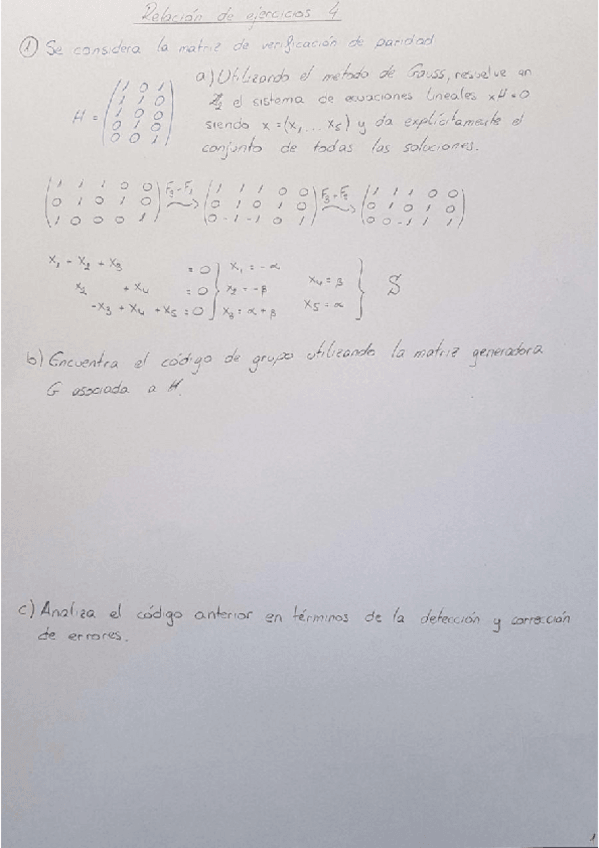 Relación de ejercicios 4
① Se considera la matriz de verificación de paridad
H = (1 0 1
1 1 0
1 0 0
0 1 0
0 0 1)
a) Utilizando el metodo de Gauss, resuelve en
Z₂ el sistema de ecuaciones lineales xH=0
siendo x=(x₁ ... x₅) y da explícitamente el
conjunto de todas las soluciones.
(1 1 1 0 0 F₃-F₁ (1 1 1 0 0 F₃-F₂ (1 1 1 0 0
0 1 0 1 0 0 1 0 1 0 0 1 0 1 0
1 0 0 0 1) 0 -1 -1 0 1) 0 0 -1 1 1)
x₁ - x₂ + x₃ = 0 } x₁ = -α
x₂ + x₄ = 0 } x₂ = -β x₄ = β
-x₃ + x₄ + x₅ = 0 } x₃ = α+β x₅ = α } S
b) Encuentra el código de grupo utilizando la matriz generadora
G asociada a H.
c) Analiza el código anterior en términos de la detección y corrección
de errores.
1